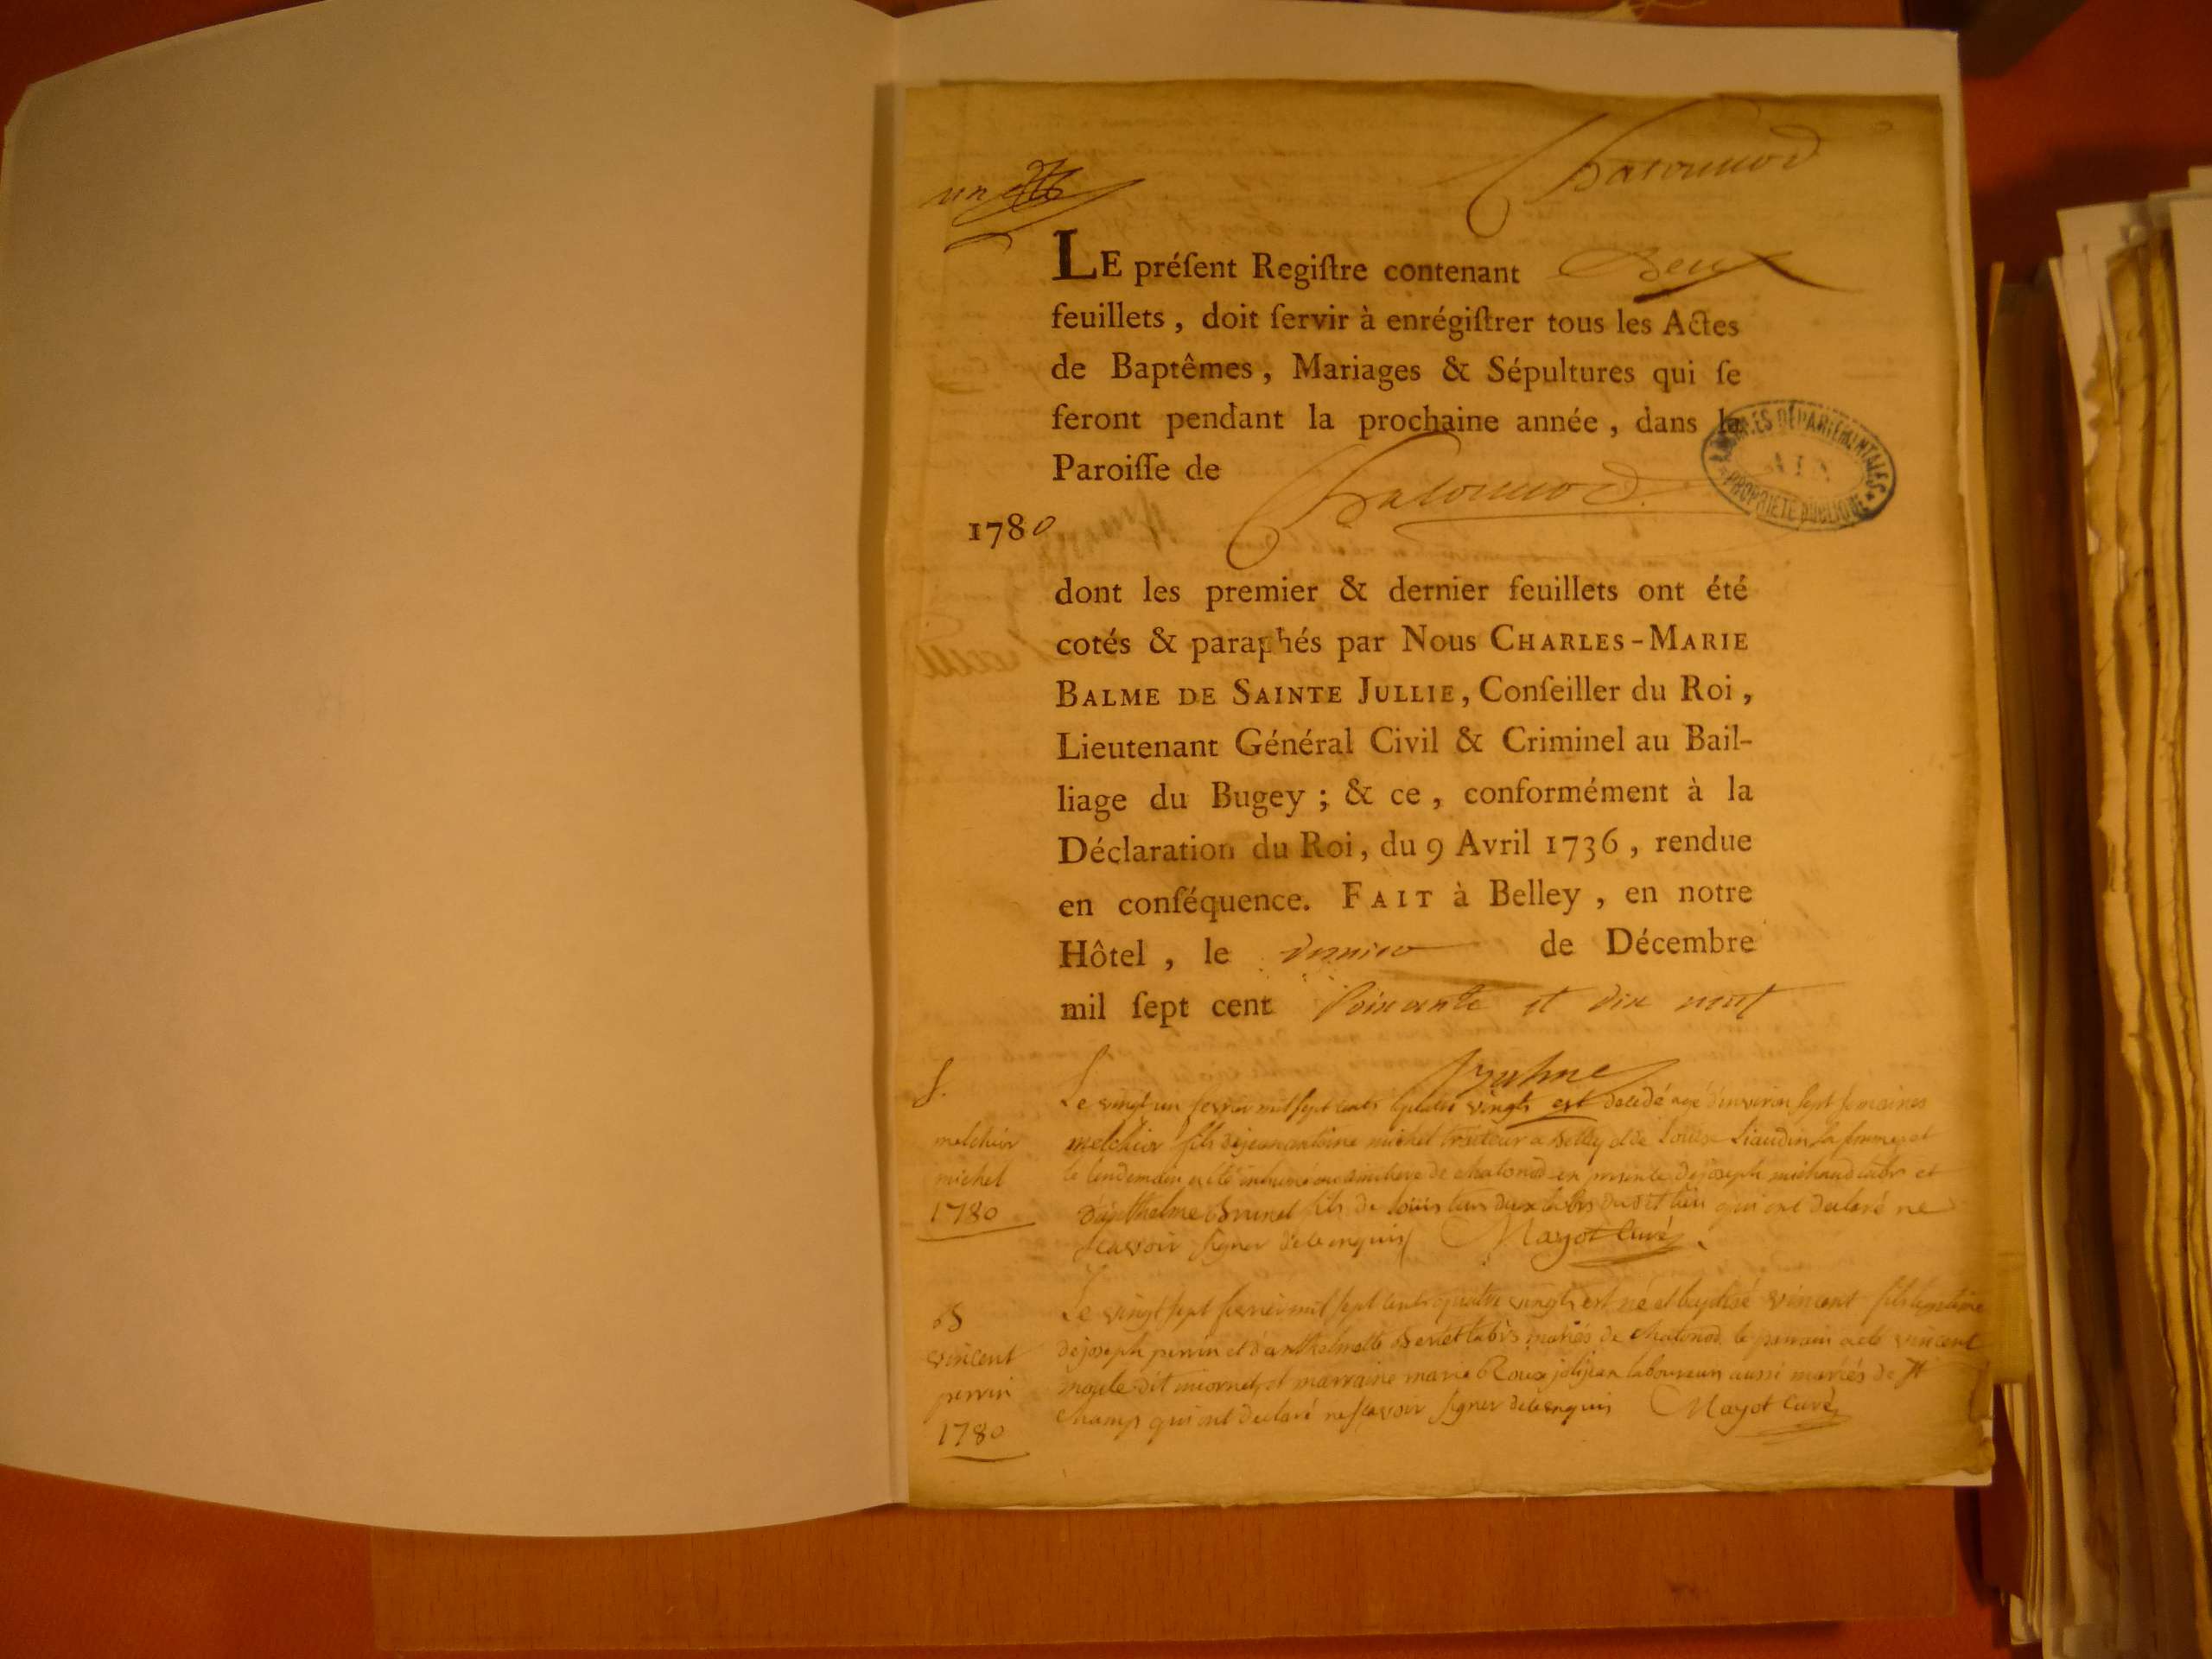 Chatonnod
un
LE préſent Regiſtre contenant Deux
feuillets , doit ſervir à enrégiſtrer tous les Actes
de Baptêmes , Mariages & Sépultures qui ſe
feront pendant la prochaine année , dans la
Paroiſſe de Chatonnod
ARCHIVES DÉPARTEMENTALES
AIN
PROPRIÉTÉ PUBLIQUE
1780
dont les premier & dernier feuillets ont été
cotés & paraphés par Nous CHARLES-MARIE
BALME DE SAINTE JULLIE, Conſeiller du Roi ,
Lieutenant Général Civil & Criminel au Bail-
liage du Bugey ; & ce , conformément à la
Déclaration du Roi, du 9 Avril 1736 , rendue
en conſéquence. FAIT à Belley , en notre
Hôtel , le de Décembre
mil ſept cent soixante et dix neuf
Balme
S.
melchior
michel
1780
Le vingt un fevrier mil sept cents quatre vingts est decedé agé d'environ sept semaines
melchior fils de jean antoine michel traiteur a Belley et de Louise Liaudin sa femme et
le lendemain a été inhumé au cimitiere de chatonod en presence de joseph michaud labr et
d'anthelme Brunet fils de louis tous deux labrs dudit lieu qui ont declaré ne
scavoir signer de ce enquis Mayot Curé
B
vincent
perrin
1780
Le vingt sept fevrier mil sept cents quatre vingts est né et baptisé vincent fils legitime
de joseph perrin et d'anthelmette labrs mariés de chatonod le parrain a eté vincent
dit et marraine marie Roux laboureurs aussi mariés de st
champ qui ont declaré ne scavoir signer de ce enquis Mayot Curé